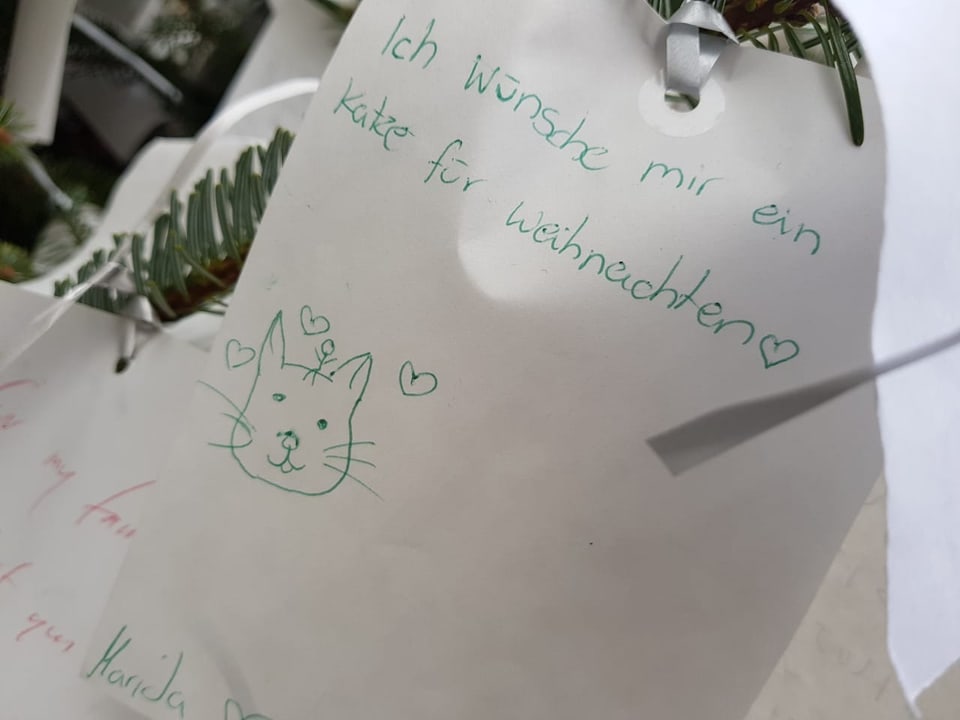 Ich Wünsche mir ein
Katze für Weihnachten♡
Marida
my fam